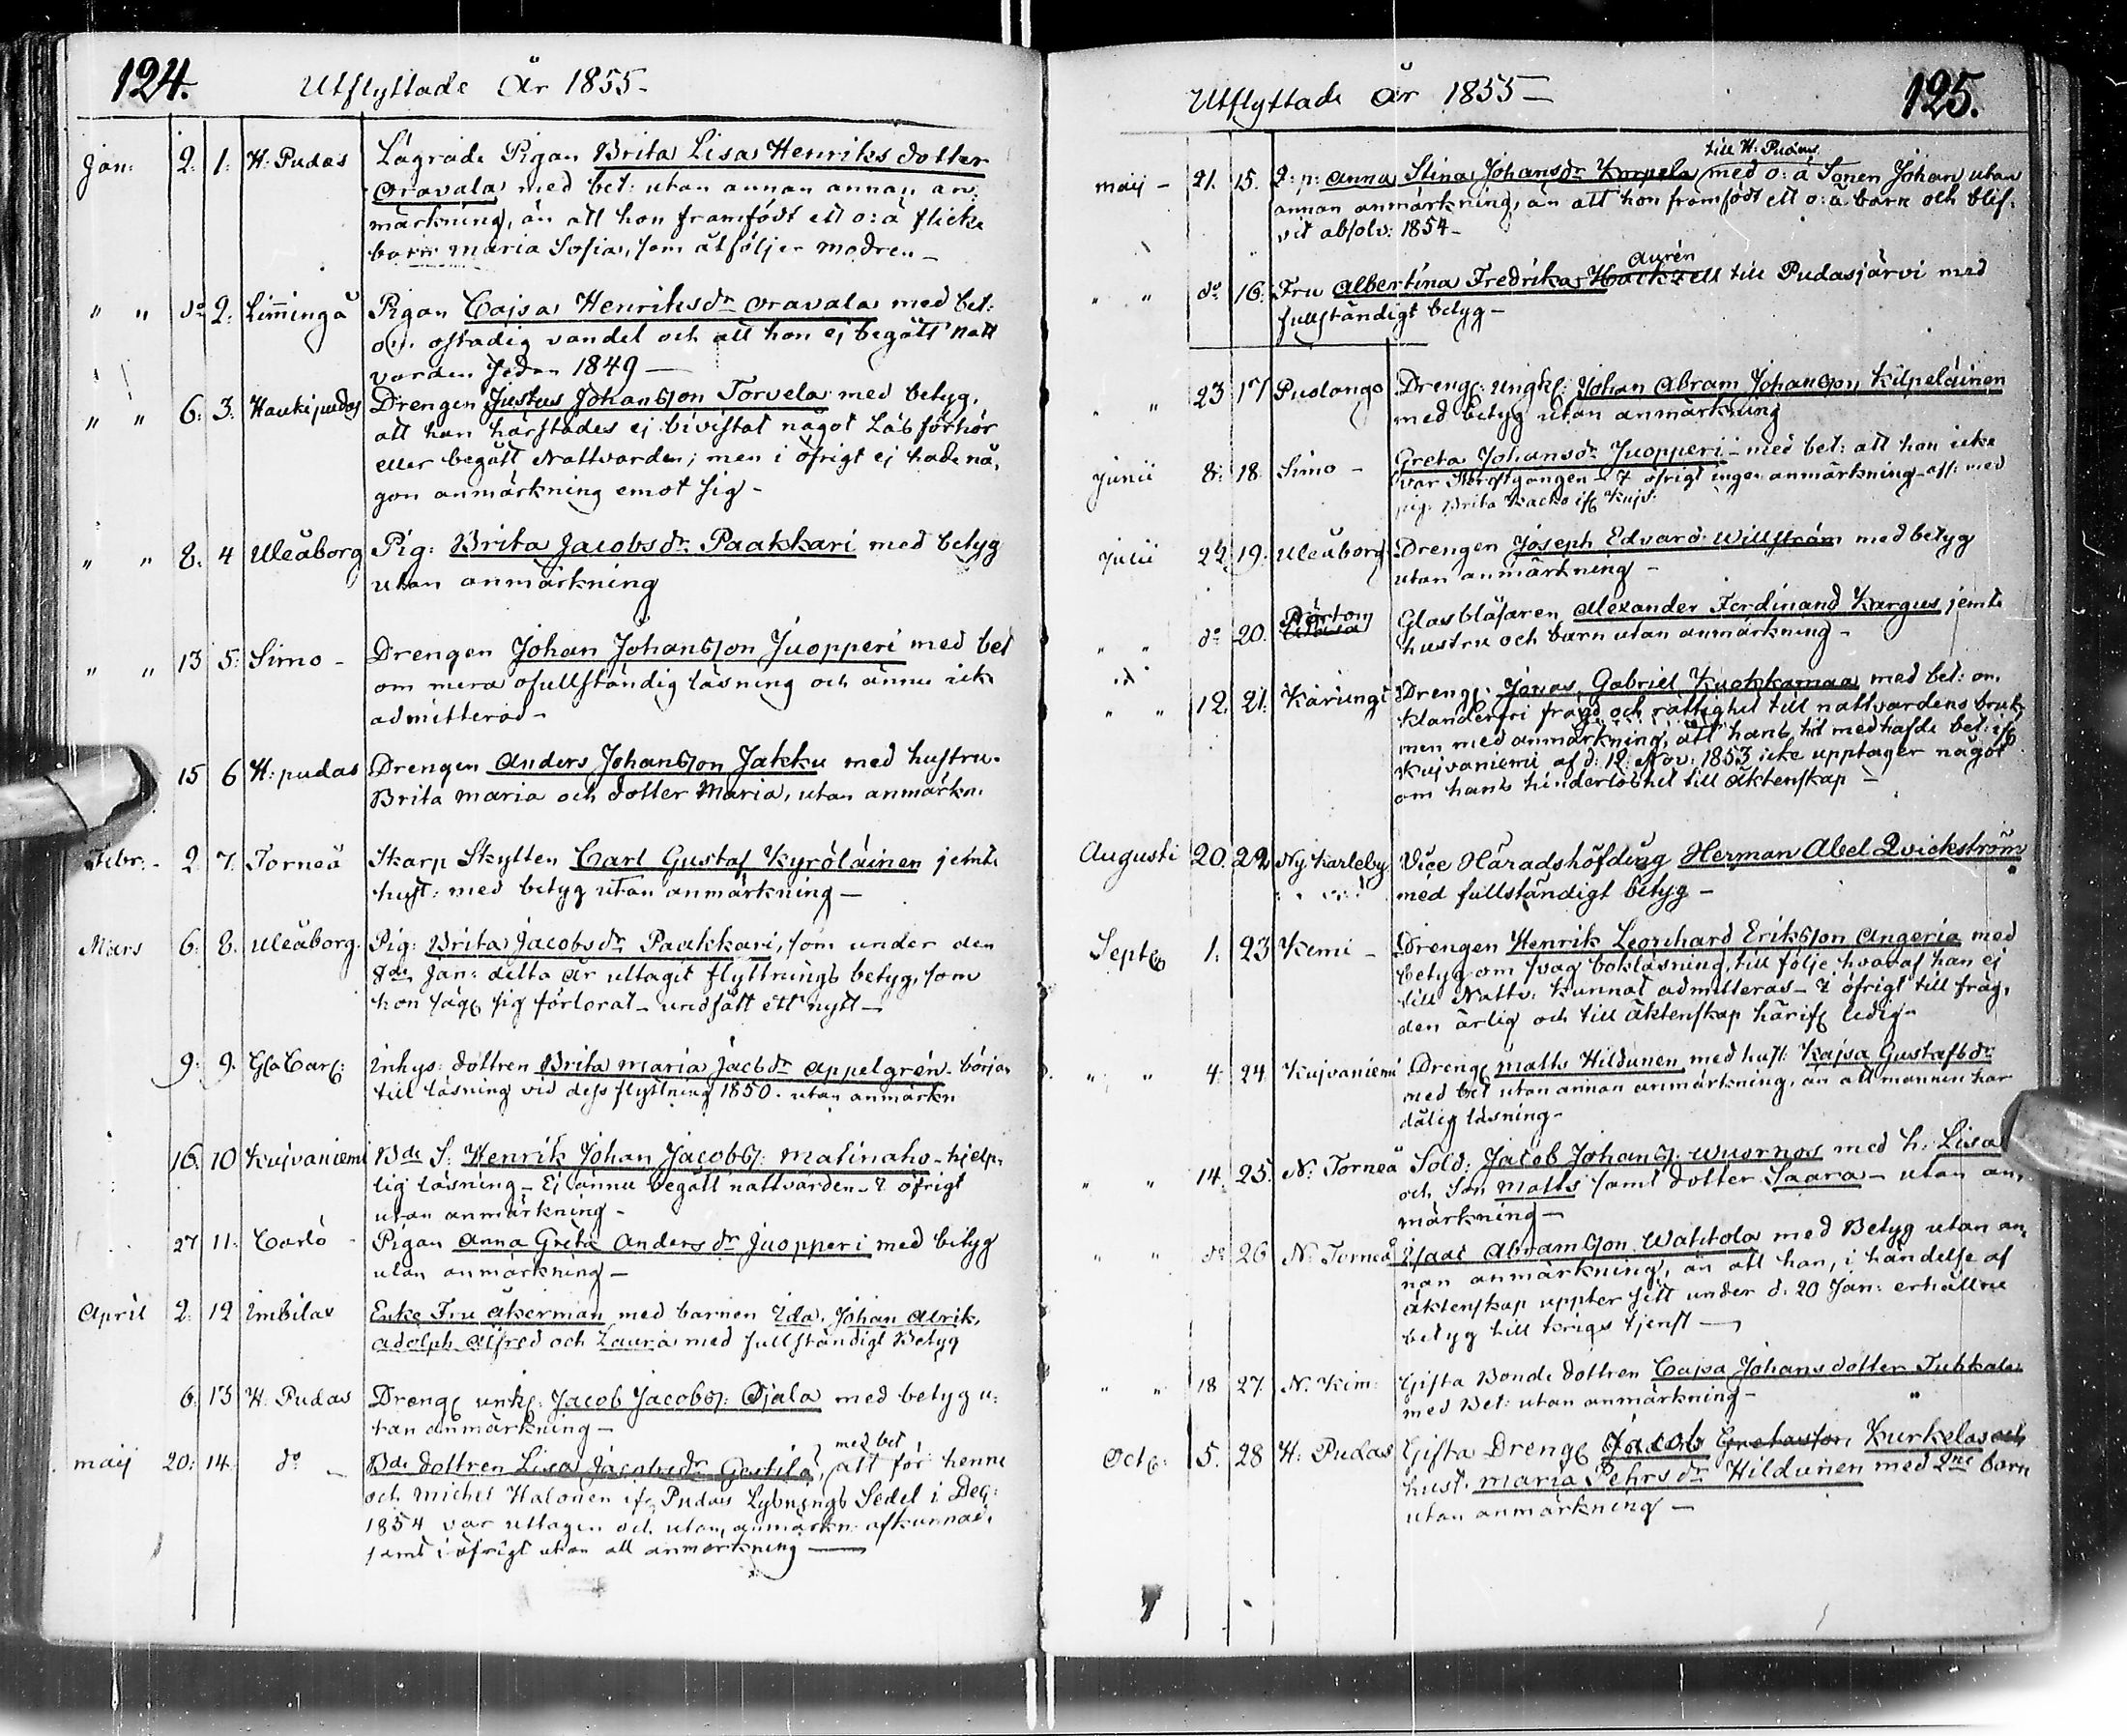 124.
Utflyttade År 1855-
Jan: 2. 1. H. Pudas Lägrade Pigan Brita Lisa Henriksdotter
Oravala, med bet: utan annan annan an-
märkning, än att hon framfödt ett o: ä flicke
barn Maria Sofia, som åtföljer modren -
" " do 2. Limingå Pigan Cajsa Henriksdr Oravala med bet:
om ostadig vandel och att hon ej begått natt
varden sedan 1849 -
" " 6: 3. Haukipudas Drengen Justus Johansson Torvela med betyg,
att han härstädes ej bivistat något Läsförhör
eller begått Nattvarden; men i öfrigt ej hade nå,
gon anmärkning emot sig -
" " 8. 4 Uleåborg Pig: Brita Jacobsdr Paakkari med betyg
utan anmärkning
" " 13 5: Simo - Drengen Johan Johansson Juopperi med bet
om mera ofullständig läsning och ännu icke
admitterad -
15 6 H: pudas Drengen Anders Johansson Jakku med hustru
Brita Maria och dotter Maria, utan anmärkn.
Febr: - 2 7. Torneå Skarp Skytten Carl Gustaf Kyröläinen jemte
hust: med betyg utan anmärkning -
Mars 6: 8. Uleåborg. Pig: Brita Jacobsdr Paakkari, som under den
8de Jan: detta år uttagit flyttnings betyg, som
hon säg: sig förlorat - undfått ett nytt -
9: 9. Gla Carl: Inhys: dottren Brita Maria Jacbdr Appelgrén - börjar
till läsning vid dess flyttning 1850. utan anmärkn
16. 10 Kuivaniemi Bde S: Henrik Johan Jacobs: Matinaho - hjelp,
lig läsning - Ej ännu begått nattvarden - I öfrigt
utan anmärkning -
27 11. Carlö - Pigan Anna Greta Andersdr Juopperi med betyg
utan anmärkning -
April 2. 12 Imbilax Enke Fru Åkerman med barnen Ida, Johan Alrik,
Adolph Alfred och Laura med fullständigt Betyg
6: 13 H. Pudas Dreng: unk: Jacob Jacobs: Ojala med betyg u:
tan anmärkning -
med bet
Maij 20: 14. do - Bde dottren Lisa Jacobsdr Gastila, att för henne
och Michel Halonen ifr. Pudas Lysnings Sedel i Dec:
1854 var uttagen och utan anmärkn: afkunnad,
samt i öfrigt utan all anmärkning -
Utflyttade år 1855 -
125.
till H. Pudas
Maij - 21. 15. Q: p: Anna Stina Johansdr Korpela med o: ä Sonen Johan utan
annan anmärkning, än att hon framfödt ett o: ä barn och blif:
vit absolv: 1854 -
Aurén
" " do 16. Fru Albertina Fredrika Hackzell till Pudasjärvi med
fullständigt betyg -
" " 23 17 Pudlango Dreng: ungk: Johan Abram Johansson Kilpeläinen
med betyg utan anmärkning
Junii 8: 18. Simo - Greta Johansdr Juopperi - med bet: att hon icke
var Skriftgången - I öfrigt ingen anmärkning - aff: med
pig: Brita
Julii 24 19. Uleåborg Drengen Joseph Edvard Willström med betyg
utan anmärkning -
Pörtom
" " do 20. Glasblåsaren Alexander Ferdinand Kargus jemte
hustru och barn utan anmärkning -
" " 12. 21. Karungi Dreng: Jonas Gabriel Kuokkamaa med bet: om
klanderfri frägd och rättighet till nattvardens bruk,
men med anmärkning, att hans hit medhafde bet: if:
Kuivaniemi af d: 12 Nov: 1853 icke upptager något
om hans hinderlöshet till äktenskap -
Augusti 20. 22 Ny Karleby Vice Häradshöfding Herman Abel Qvickström
med fullständigt betyg -
Sept: 1. 23 Kemi - Drengen Henrik Leonhard Eriksson Angeria med
betyg om svag bokläsning, till följe hvaraf han ej
till Nattv: kunnat admitteras - I öfrigt till fräg,
den ärlig och till äktenskap härif: ledig -
" " 4. 24 Kuivaniemi Dreng: Matts Hildunen med hust: Kajsa Gustafsdr
med bet utan annan anmärkning, än att mannen har
dålig läsning -
" " 14. 25. N. Torneå Sold: Jacob Johans: Wuornos med h: Lisa
och Son Matts samt dotter Saara - utan an,
märkning -
" " do 26 N. Torneå Isaac Abramsson Wahtola med Betyg utan an,
nan anmärkning, än att han, i händelse af
äktenskap uppter sitt under d. 20 Jan: erhållne
betyg till krigs tjenst -
" " 18 27. N. Kim: Gifta Bonde dottren Cajsa Johansdotter Tuhkala
med Bet: utan anmärkning -
Oct: 5. 28 H. Pudas Gifta Dreng: Jacob Gustafsson Kurkela och
hust. Maria Pehrsdr Hildunen med 2ne barn
utan anmärkning -